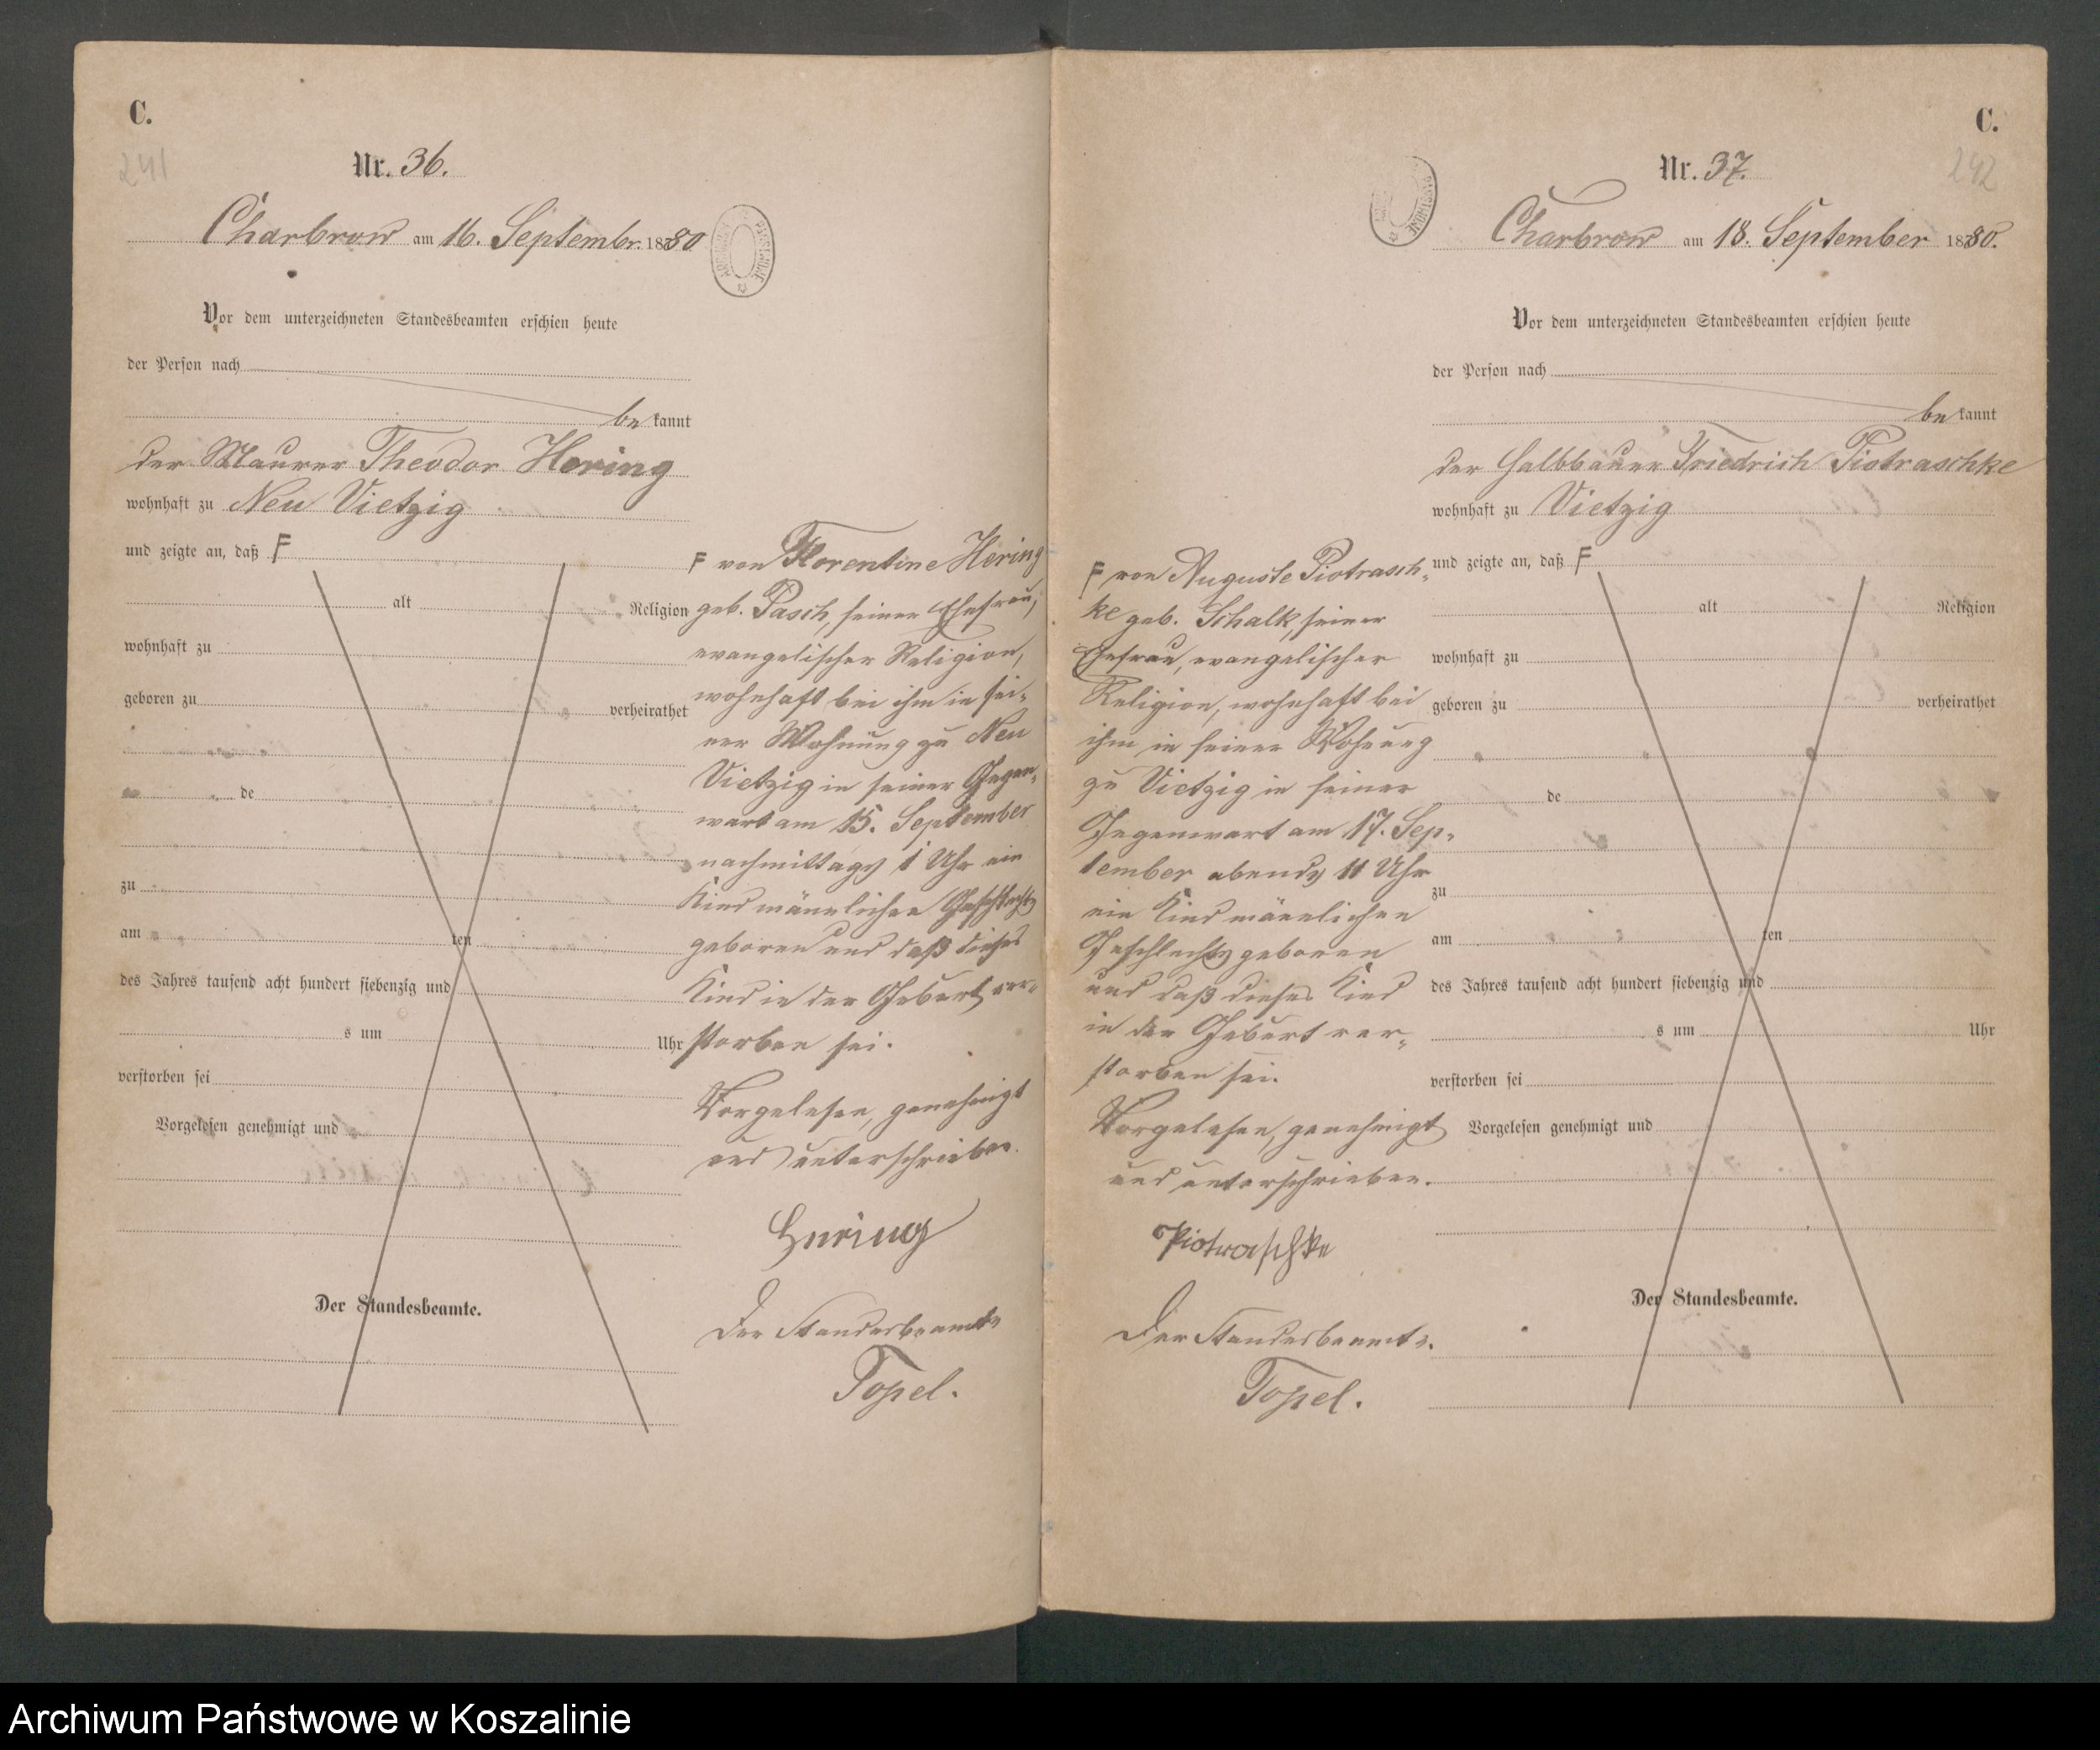 C.
241
Nr. 36.
Charbrow am 16. Septembr. 1880
ARCHIWUM PAŃSTWOWE
Vor dem unterzeichneten Standesbeamten erschien heute
der Person nach
be kannt
der Maurer Theodor Hering
wohnhaft zu Neu Vietzig
und zeigte an, daß F
alt Religion
wohnhaft zu
geboren zu
verheirathet
de
zu
am ten
des Jahres tausend acht hundert siebenzig und
s um Uhr
verstorben sei
Vorgelesen genehmigt und
Der Standesbeamte.
F von Florentine Hering
geb. Pasch, seiner Ehefrau,
evangelischer Religion,
wohnhaft bei ihm in sei-
ner Wohnung zu Neu
Vietzig in seiner Gegen-
wart am 15. September
nachmittags 1 Uhr ein
Kind männlichen Geschlechts
geboren und daß dieses
Kind in der Geburt ver-
storben sei.
Vorgelesen, genehmigt
und unterschrieben.
Hering
Der Standesbeamte
Topel.
C.
242
Nr. 37.
Charbrow am 18. September 1880.
Vor dem unterzeichneten Standesbeamten erschien heute
der Person nach
be kannt
der Halbbauer Friedrich Piotraschke
wohnhaft zu Vietzig
und zeigte an, daß F
alt Religion
wohnhaft zu
geboren zu
verheirathet
de
zu
am ten
des Jahres tausend acht hundert siebenzig und
s um Uhr
verstorben sei
Vorgelesen genehmigt und
Der Standesbeamte.
F von Auguste Piotrasch-
ke geb. Schalk, seiner
Ehefrau, evangelischer
Religion, wohnhaft bei
ihm in seiner Wohnung
zu Vietzig in seiner
Gegenwart am 17. Sep-
tember abends 11 Uhr
ein Kind männlichen
Geschlechts geboren
und daß dieses Kind
in der Geburt ver-
storben sei.
Vorgelesen, genehmigt
und unterschrieben.
Piotraschke
Der Standesbeamte.
Topel.
Archiwum Państwowe w Koszalinie